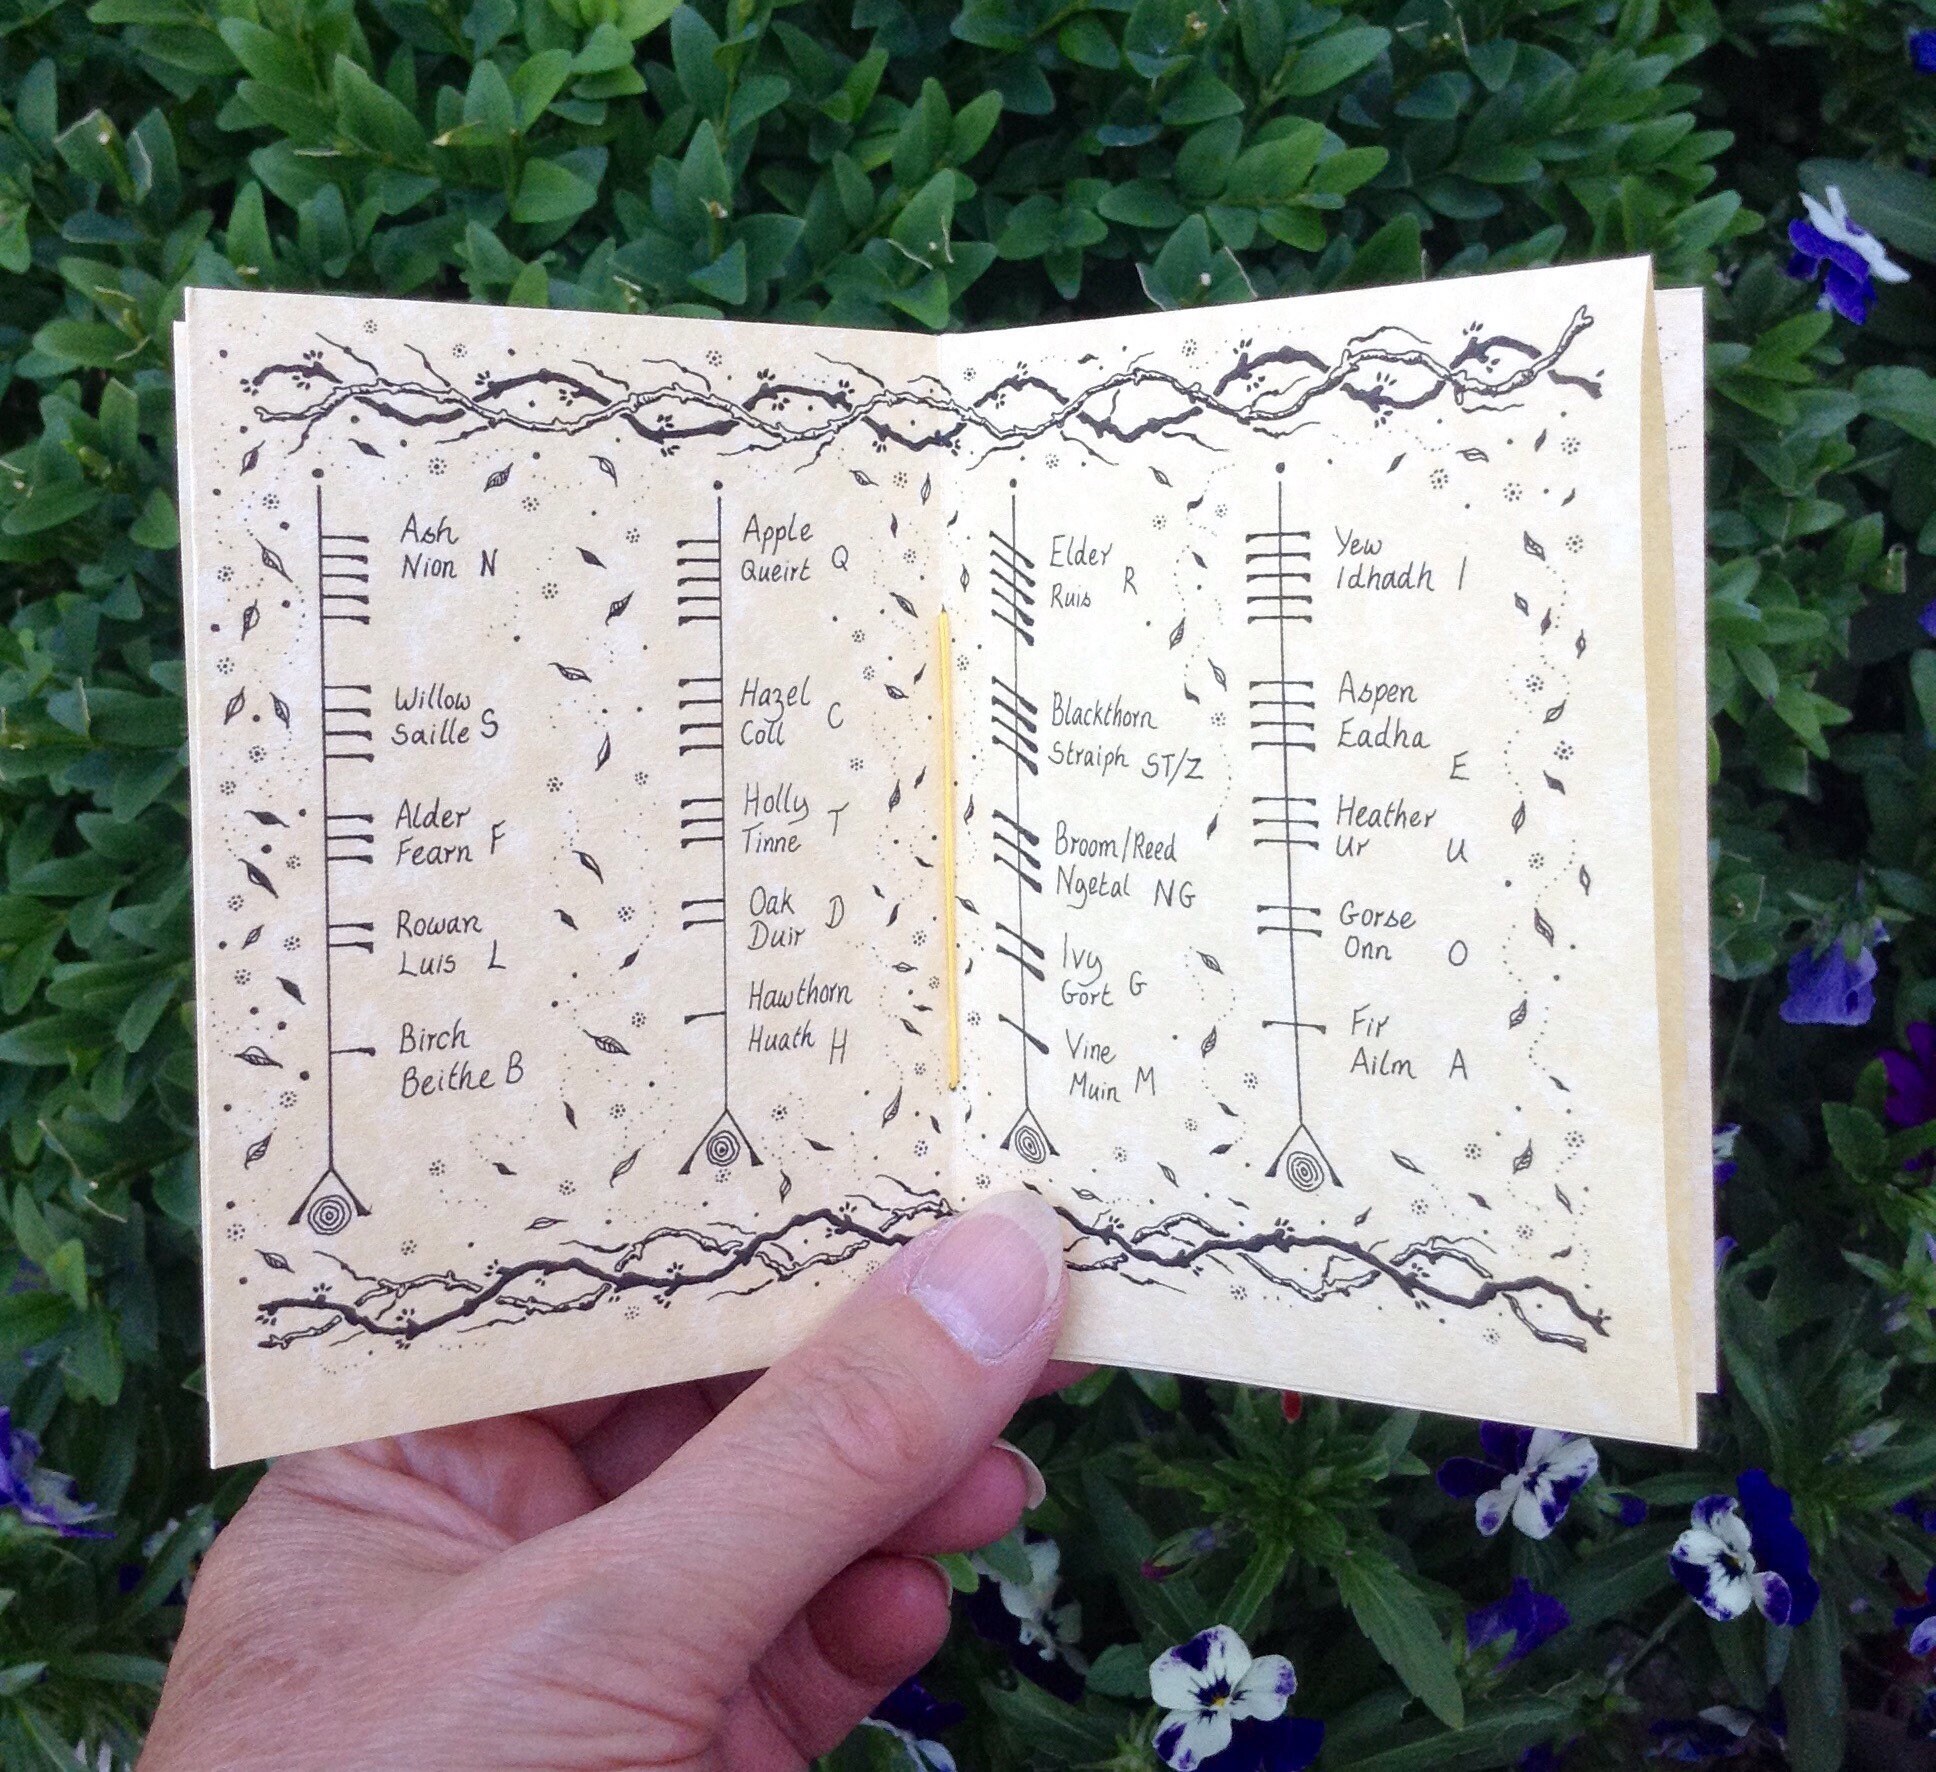 Ash
Nion N
Willow
Saille S
Alder
Fearn F
Rowan
Luis L
Birch
Beithe B
Apple
Queirt Q
Hazel
Coll C
Holly
Tinne T
Oak
Duir D
Hawthorn
Huath H
Elder
Ruis R
Blackthorn
Straiph ST/Z
Broom/Reed
Ngetal NG
Ivy
Gort G
Vine
Muin M
Yew
Idhadh I
Aspen
Eadha
E
Heather
Ur U
Gorse
Onn O
Fir
Ailm A